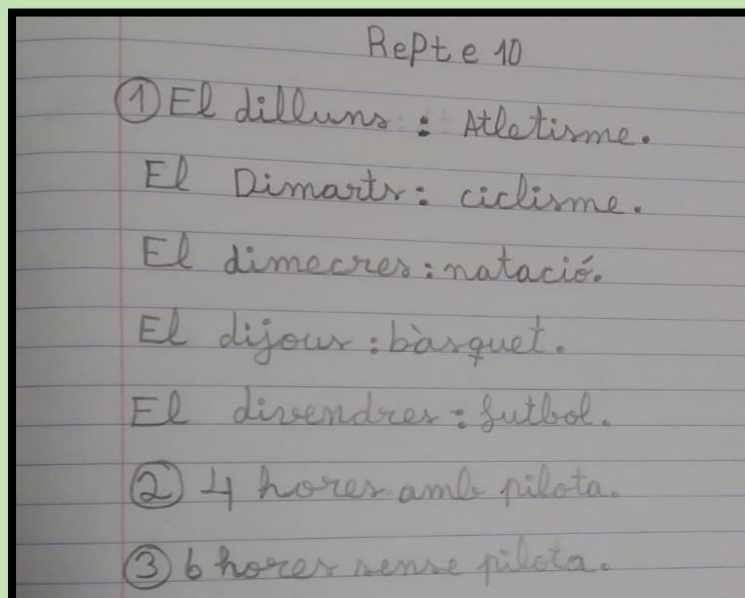 RePte 10
① El dilluns : Atletisme.
El Dimarts : ciclisme.
El dimecres : natació.
El dijous : bàsquet.
El divendres : futbol.
② 4 hores amb pilota.
③ 6 hores sense pilota.